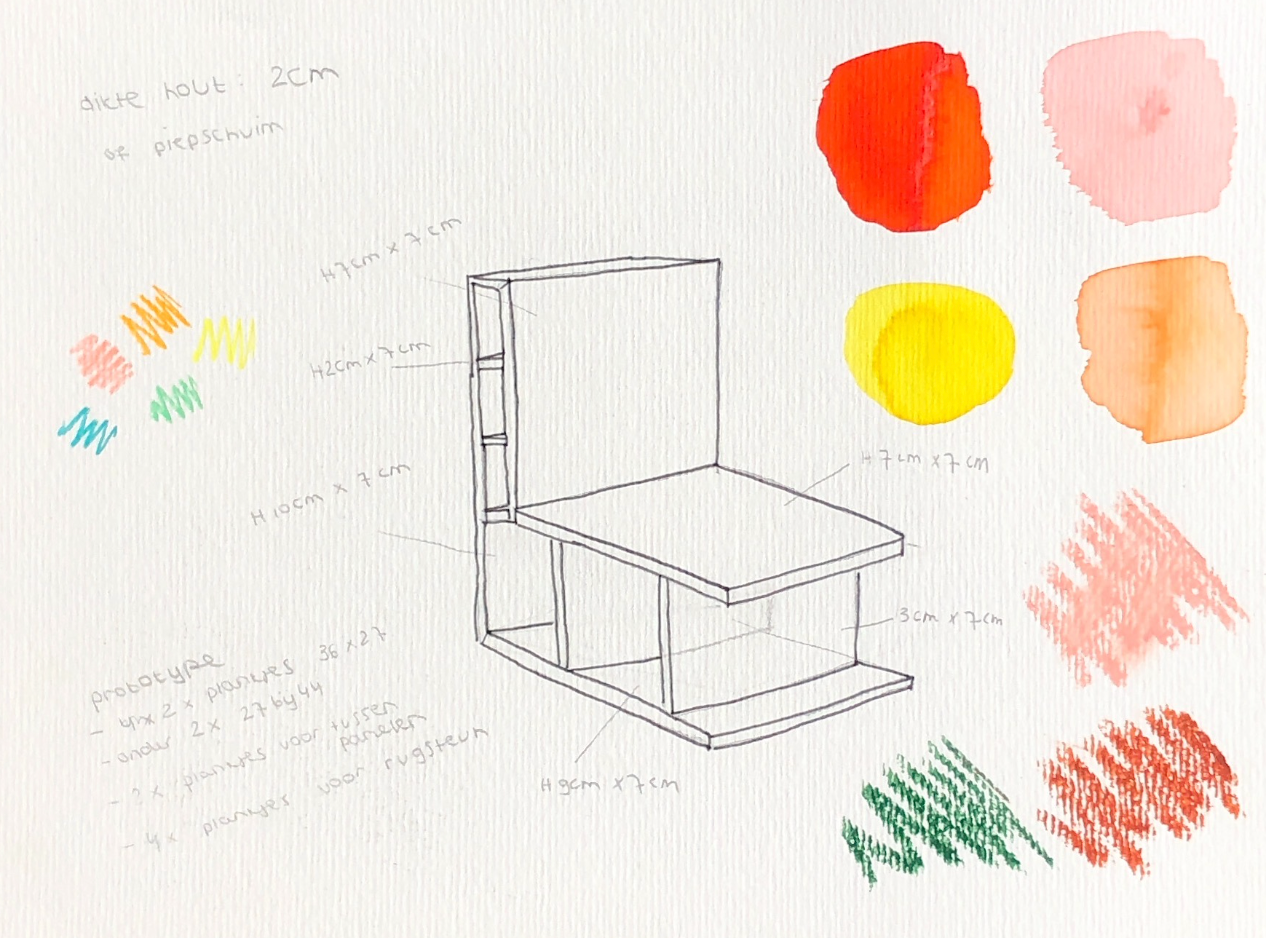 dikte hout: 2cm
of piepschuim
H7cm x 7cm
H2cm x 7cm
H10cm x 7cm
H 7cm x 7cm
3cm x 7cm
H 9cm x 7cm
prototype
- 2x plankjes 36 x 27
- onder 2x 27 by 44
- ?x plankjes voor tussen
panelen
- 4x plankjes voor rugsteun